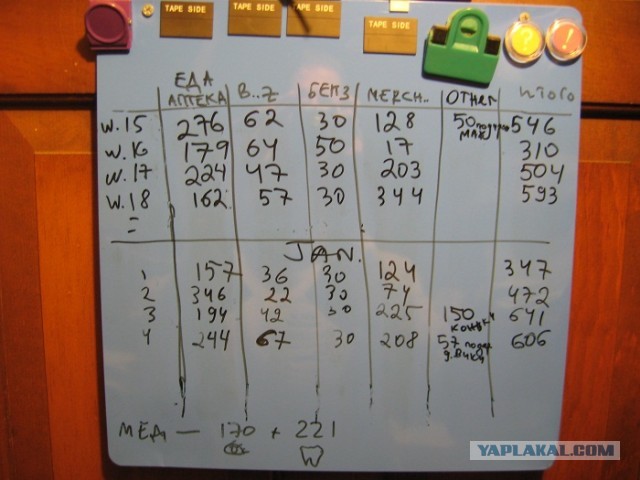 TAPE SIDE TAPE SIDE TAPE SIDE TAPE SIDE
ЕДА
АПТЕКА B..Z БЕНЗ MERCH.. OTHER ИТОГО
W.15 276 62 30 128 50 546
W.16 179 64 50 17 310
W.17 224 47 30 203 504
W.18 162 57 30 344 593
JAN.
1 157 36 30 124 347
2 346 22 30 74 472
3 194 42 30 225 150 641
4 244 67 30 208 57 606
МЕД — 170 + 221
YAPLAKAL.COM